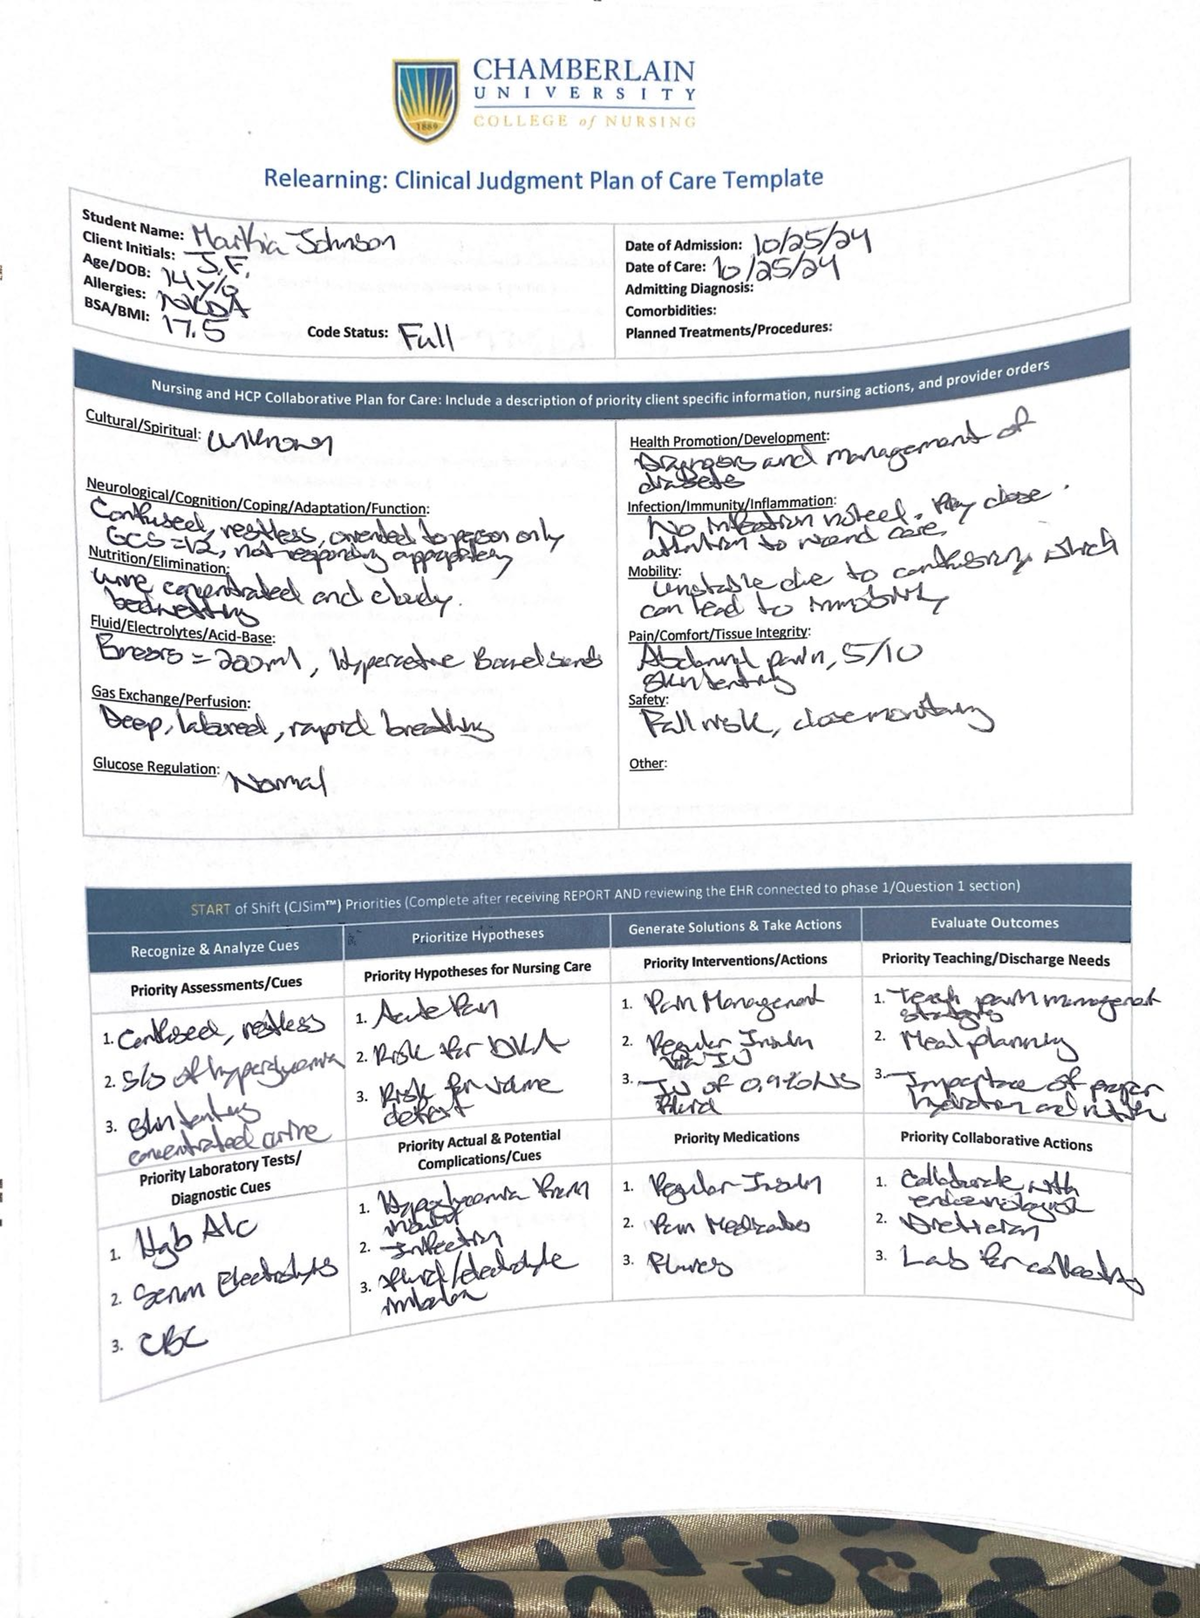 CHAMBERLAIN
UNIVERSITY
COLLEGE of NURSING
1889
Relearning: Clinical Judgment Plan of Care Template
Student Name: Marthia Johnson
Client Initials: J.F.
Age/DOB: 14 y/o
Allergies: NKDA
BSA/BMI: 17.5
Code Status: Full
Date of Admission: 10/25/24
Date of Care: 10/25/24
Admitting Diagnosis:
Comorbidities:
Planned Treatments/Procedures:
Nursing and HCP Collaborative Plan for Care: Include a description of priority client specific information, nursing actions, and provider orders
Cultural/Spiritual: Unknown
Neurological/Cognition/Coping/Adaptation/Function:
Confused, restless, oriented to person only
GCS = 12, not responding appropriately
Nutrition/Elimination:
Urine concentrated and cloudy.
bedwetting
Fluid/Electrolytes/Acid-Base:
Emesis = 200ml, Hyperactive Bowel sounds
Gas Exchange/Perfusion:
Deep, labored, rapid breathing
Glucose Regulation: Normal
Health Promotion/Development:
Diagnosis and management of
diabetes
Infection/Immunity/Inflammation:
No infection noted. Pay close
attention to wound care.
Mobility:
Unstable due to confusion, which
can lead to immobility
Pain/Comfort/Tissue Integrity:
Abdominal pain, 5/10
Skin tenting
Safety:
Fall risk, close monitoring
Other:
START of Shift (CJSim™) Priorities (Complete after receiving REPORT AND reviewing the EHR connected to phase 1/Question 1 section)
Recognize & Analyze Cues
Priority Assessments/Cues
1. Confused, restless
2. S/S of hyperglycemia
3. Skin tenting
concentrated urine
Priority Laboratory Tests/
Diagnostic Cues
1. Hgb A1c
2. Serum Electrolytes
3. CBC
Prioritize Hypotheses
Priority Hypotheses for Nursing Care
1. Acute Pain
2. Risk for DKA
3. Risk for volume
deficit
Priority Actual & Potential
Complications/Cues
1. Hypoglycemia from
insulin
2. Infection
3. fluid/electrolyte
imbalance
Generate Solutions & Take Actions
Priority Interventions/Actions
1. Pain Management
2. Regular Insulin
via IV
3. IV of 0.9% NS
Fluid
Priority Medications
1. Regular Insulin
2. Pain Medications
3. Fluids
Evaluate Outcomes
Priority Teaching/Discharge Needs
1. Teach pain management
strategies
2. Meal planning
3. Importance of proper
hydration and nutrition
Priority Collaborative Actions
1. Collaborate with
endocrinologist
2. Dietician
3. Lab for collecting